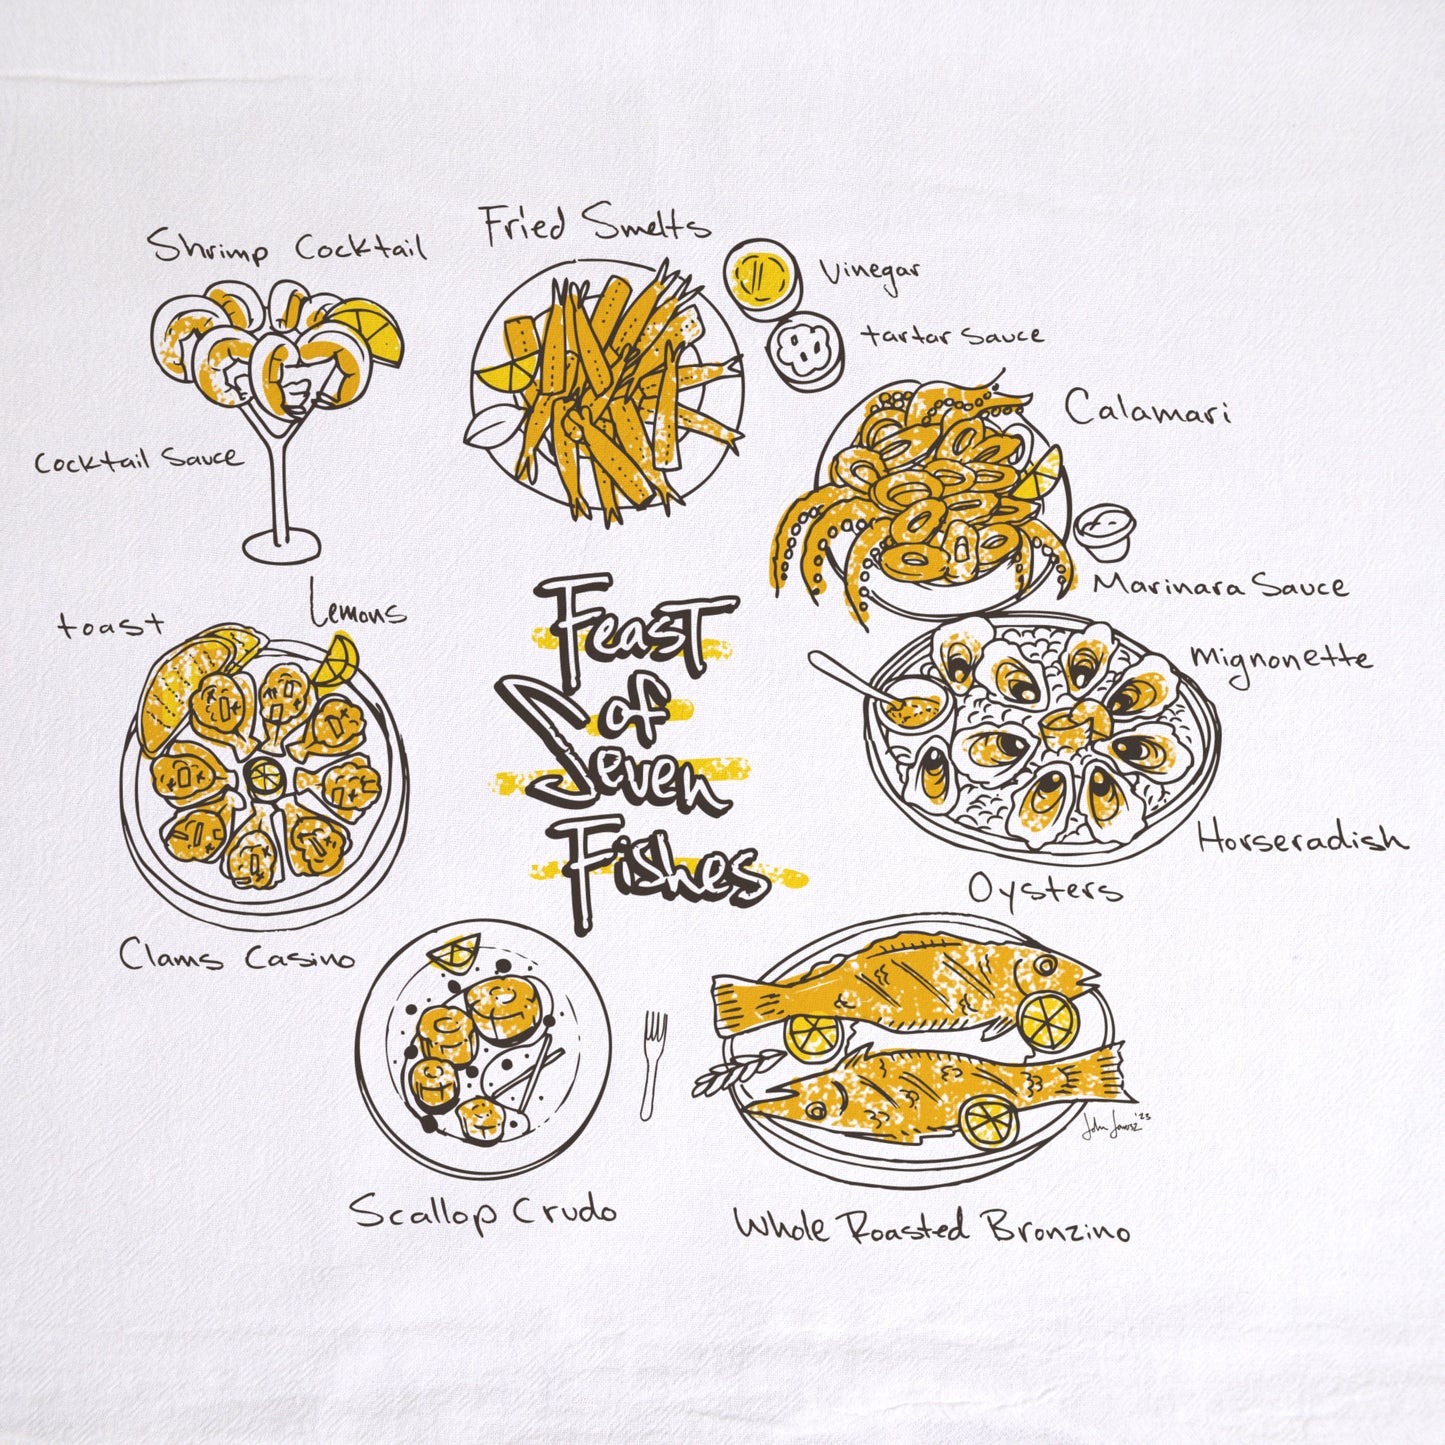 Fried Smelts
Shrimp Cocktail
Vinegar
tartar Sauce
Calamari
Cocktail Sauce
Marinara Sauce
toast
Lemons
Feast
of
Seven
Fishes
Mignonette
Horseradish
Oysters
Clams Casino
Scallop Crudo
Whole Roasted Bronzino